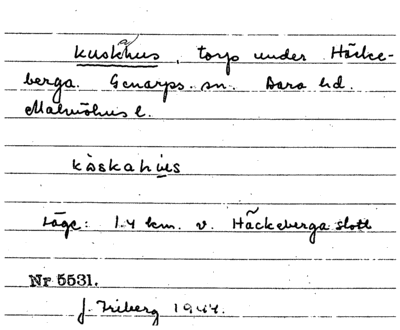 Kuskhus, torp under Häcke-
berga. Genarps sn. Bara hd.
Malmöhus l.
kåskahus
Läge: 1.4 km. v. Häckeberga slott
Nr 5531.
J. Friberg 1944.